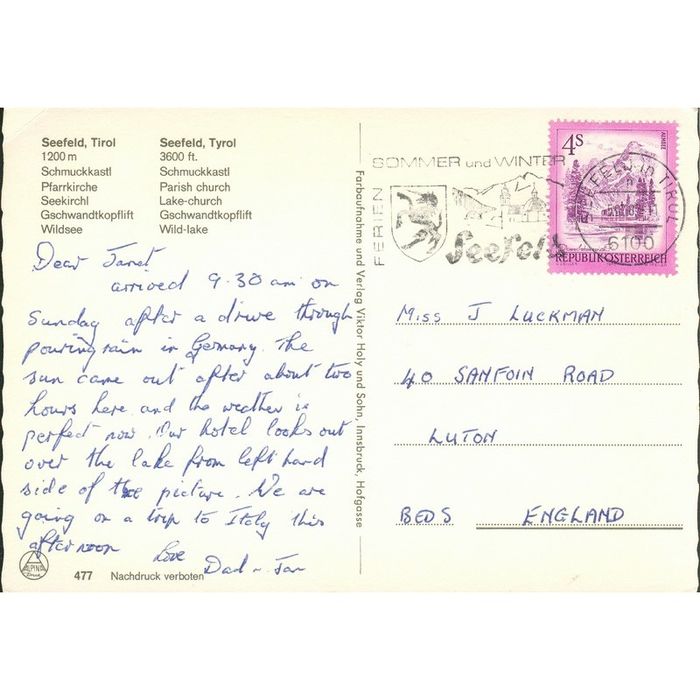 Seefeld, Tirol
1200 m
Schmuckkastl
Pfarrkirche
Seekirchl
Gschwandtkopflift
Wildsee
Seefeld, Tyrol
3600 ft.
Schmuckkastl
Parish church
Lake-church
Gschwandtkopflift
Wild-lake
Dear Janet
arrived 9.30 am on
Sunday after a drive through
pouring rain in Germany. The
sun came out after about two
hours here and the weather is
perfect now. Our hotel looks out
over the lake from left hand
side of the picture. We are
going on a trip to Italy this
afternoon
Love
Dad - Jan
ALPIN
477 Nachdruck verboten
Farbaufnahme und Verlag Viktor Holy und Sohn, Innsbruck, Hofgasse
FERIEN
SOMMER und WINTER
Seefeld
4S
ALMSEE
REPUBLIK ÖSTERREICH
SEEFELD in TIROL
6100
Miss J LUCKMAN
40 SANFOIN ROAD
LUTON
BEDS ENGLAND